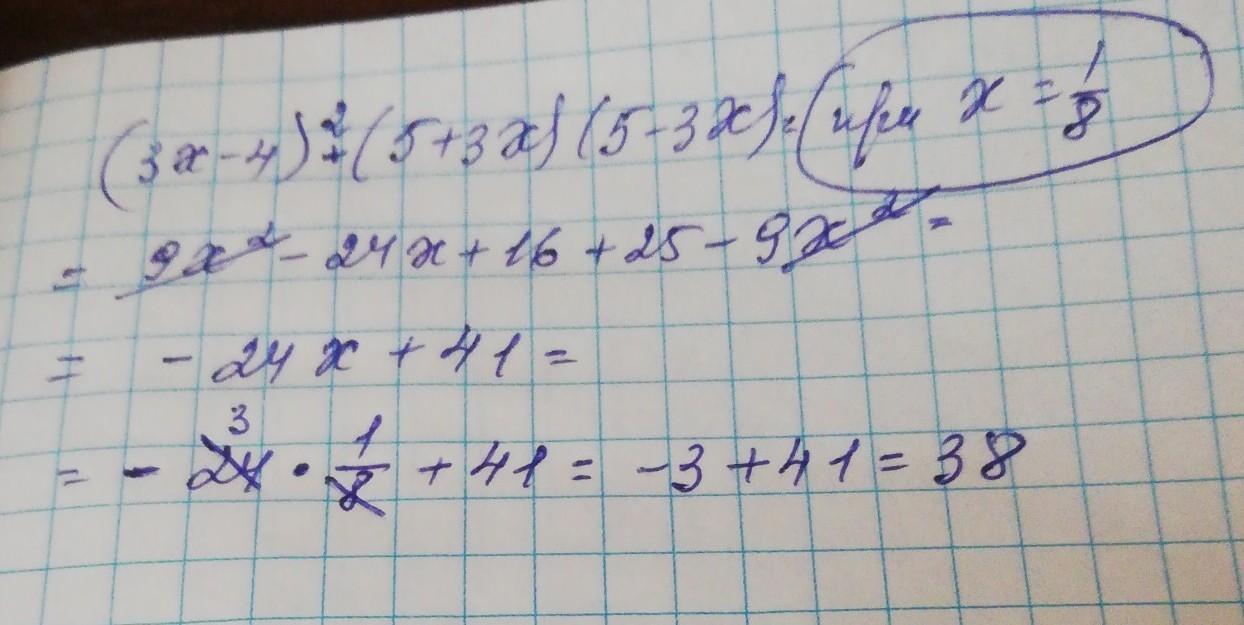 (3x-4)²+(5+3x)(5-3x)= при x = 1/8
= 9x² - 24x + 16 + 25 - 9x² =
= - 24x + 41 =
= - 24 3 · 1/8 + 41 = -3 + 41 = 38